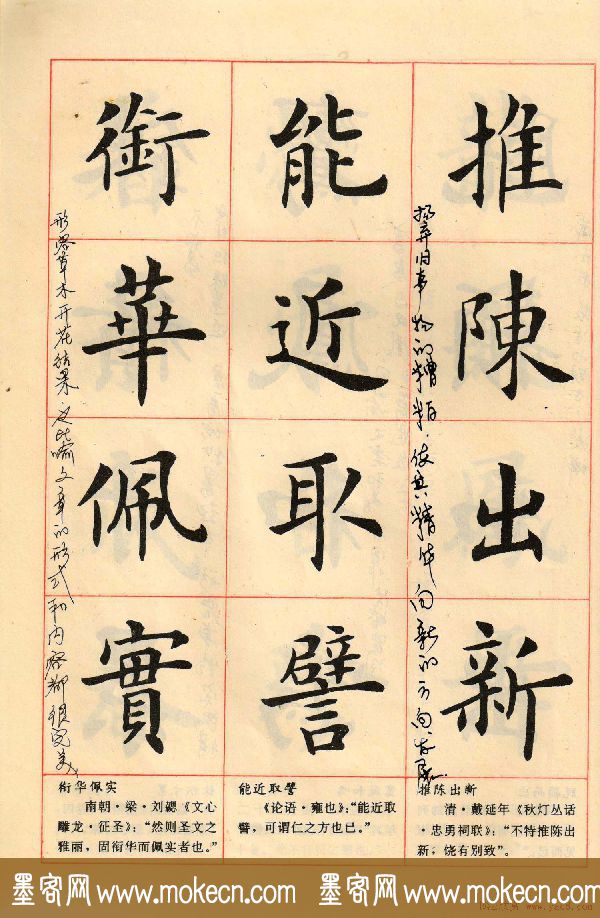 推陳出新
能近取譬
銜華佩實
扬弃旧事物的糟粕，使其精华向新的方向发展
形容草木开花结果，也比喻文章的形式和内容都很完美
推陈出新
清·戴延年《秋灯丛话
·忠勇祠联》：“不特推陈出
新，饶有别致”。
能近取譬
《论语·雍也》：“能近取
譬，可谓仁之方也已。”
衔华佩实
南朝·梁·刘勰《文心
雕龙·征圣》：“然则圣文之
雅丽，固衔华而佩实者也。”
墨客网 www.mokecn.com 墨客网 www.mokecn.com